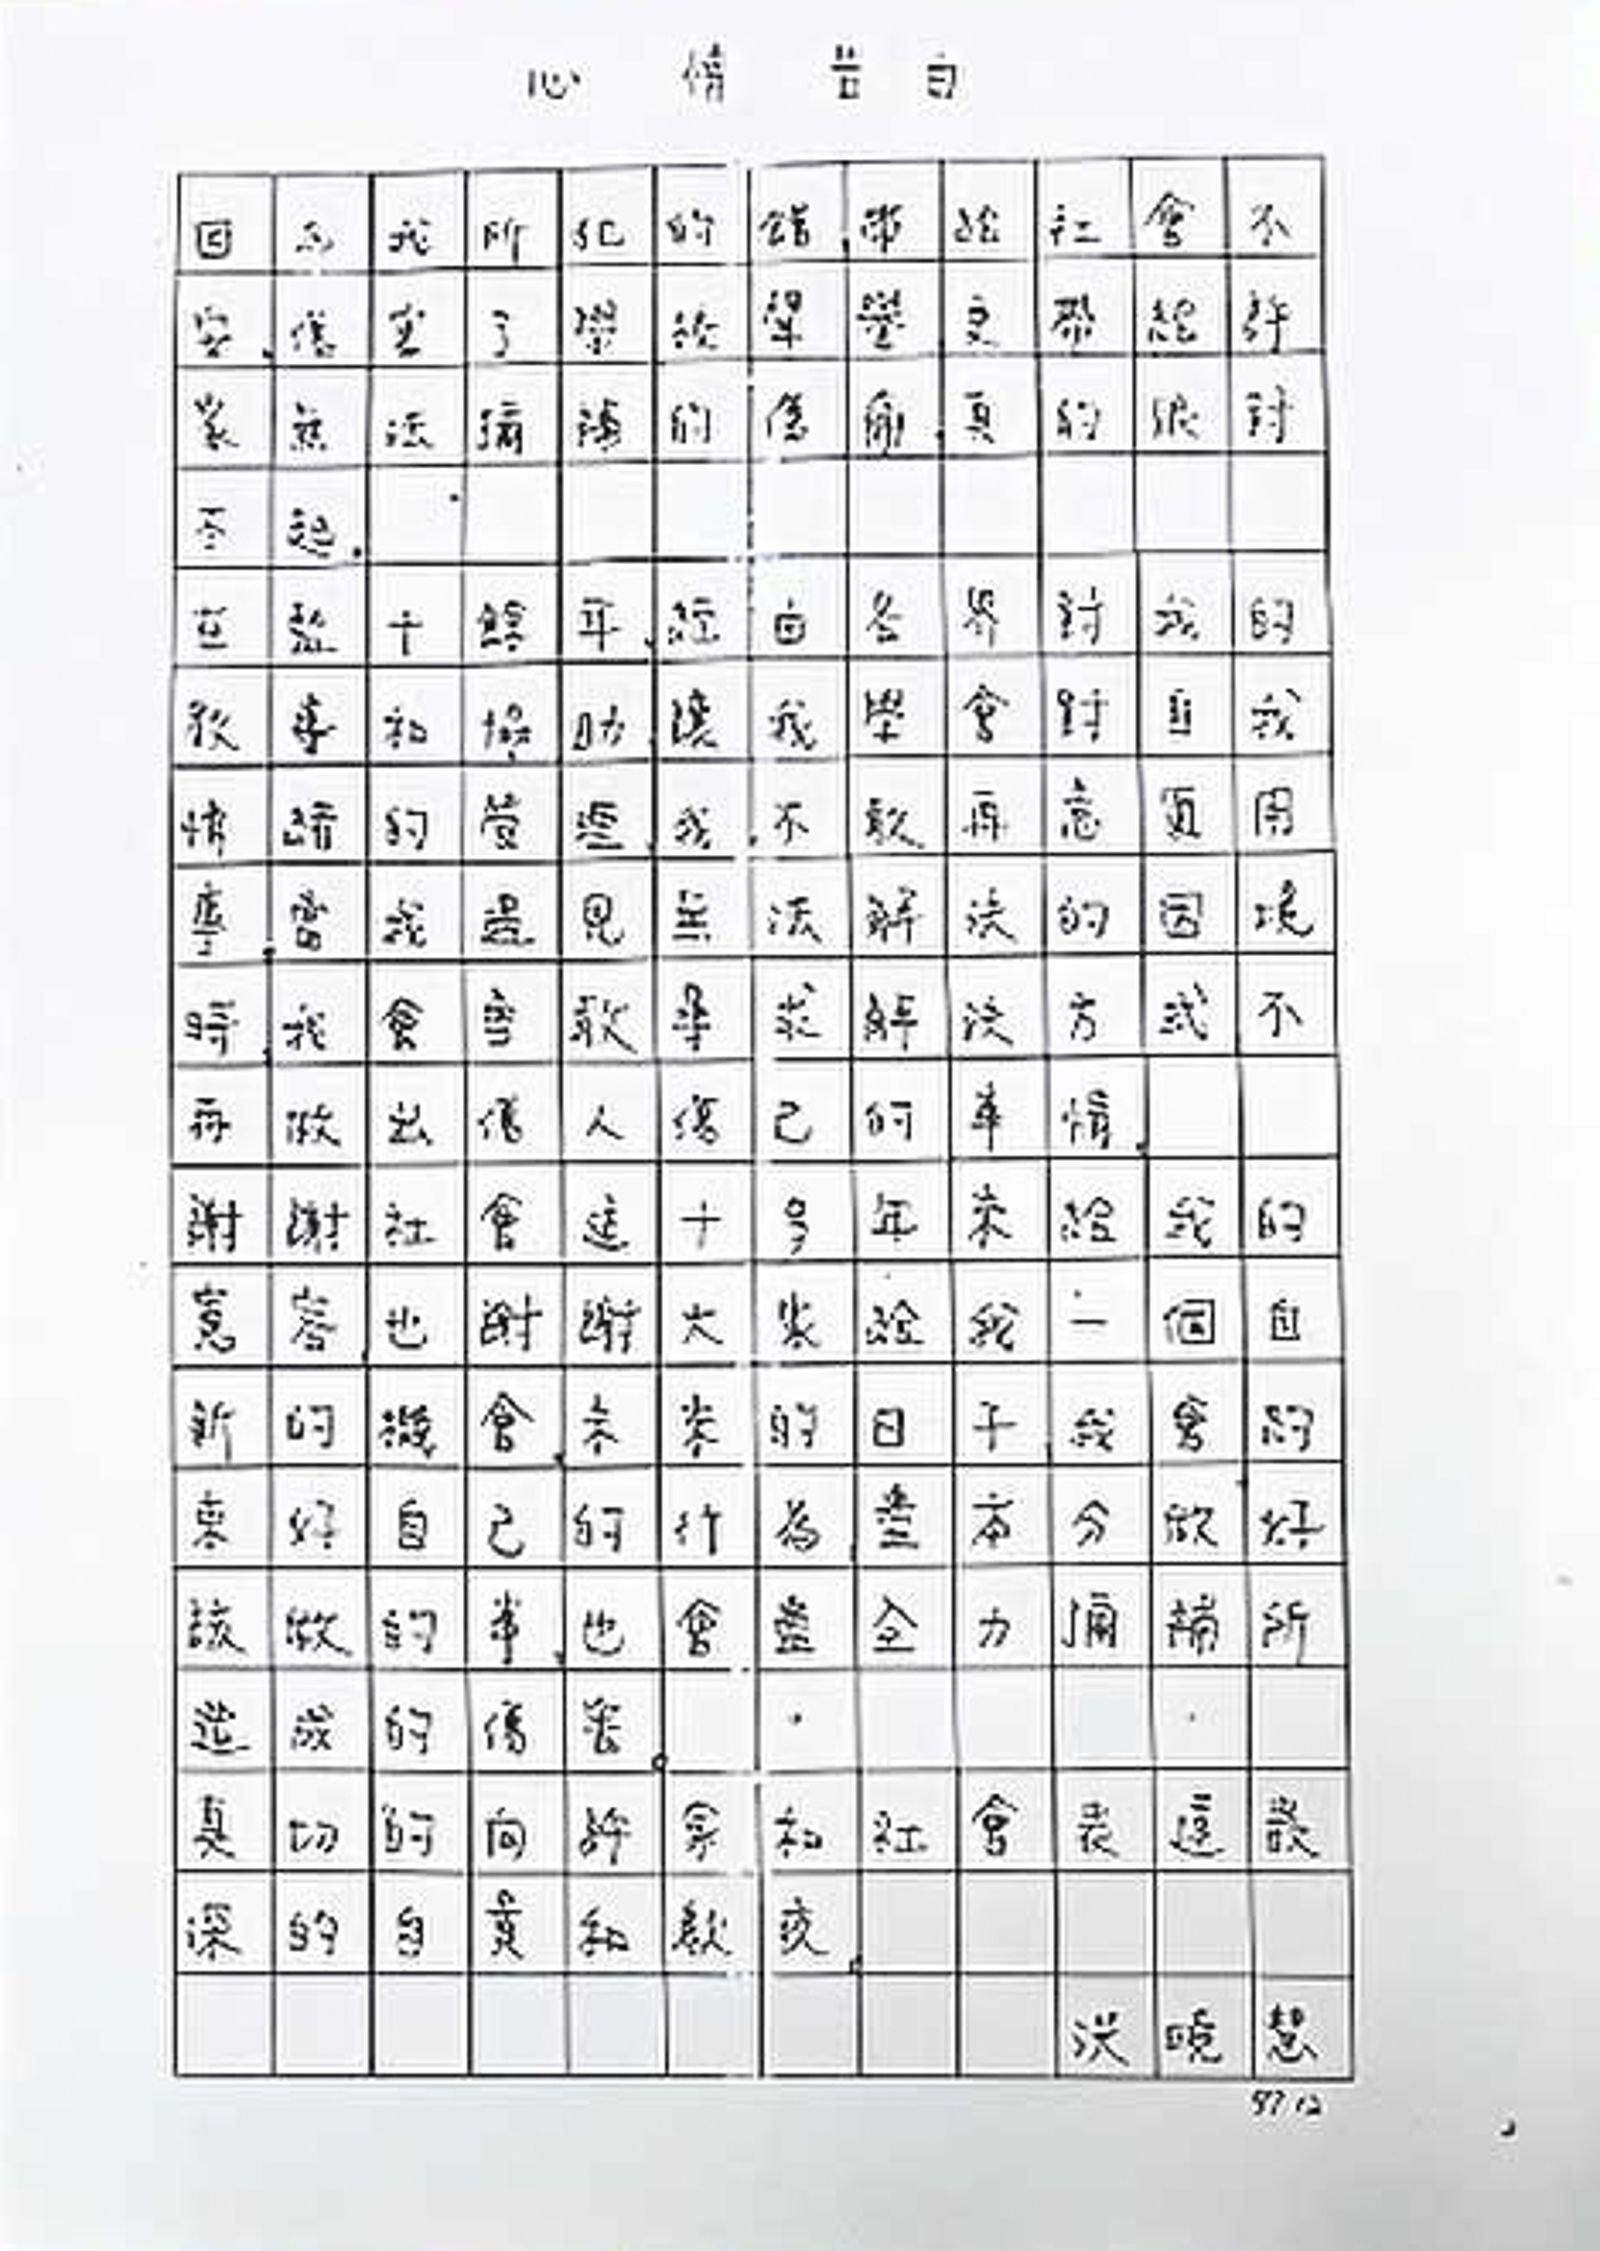 心情告白
因為我所犯的錯,帶給社會不
安,傷害了學校學業更帶給許
家無法彌補的傷痛,真的很對
不起.
在監十餘年,經由各界對我的
教導和協助,讓我學會對自我
情緒的管理,我不敢再意氣用
事,當我遇見無法解決的困境
時,我會勇敢尋求解決方式不
再做出傷人傷己的事情.
謝謝社會這十多年來給我的
寬容,也謝謝大家給我一個自
新的機會,未來的日子,我會約
束好自己的行為,盡本分做好
該做的事,也會盡全力彌補所
造成的傷害。
真切的向許家和社會表達最
深的自責和歉疚.
洪曉慧
97 12